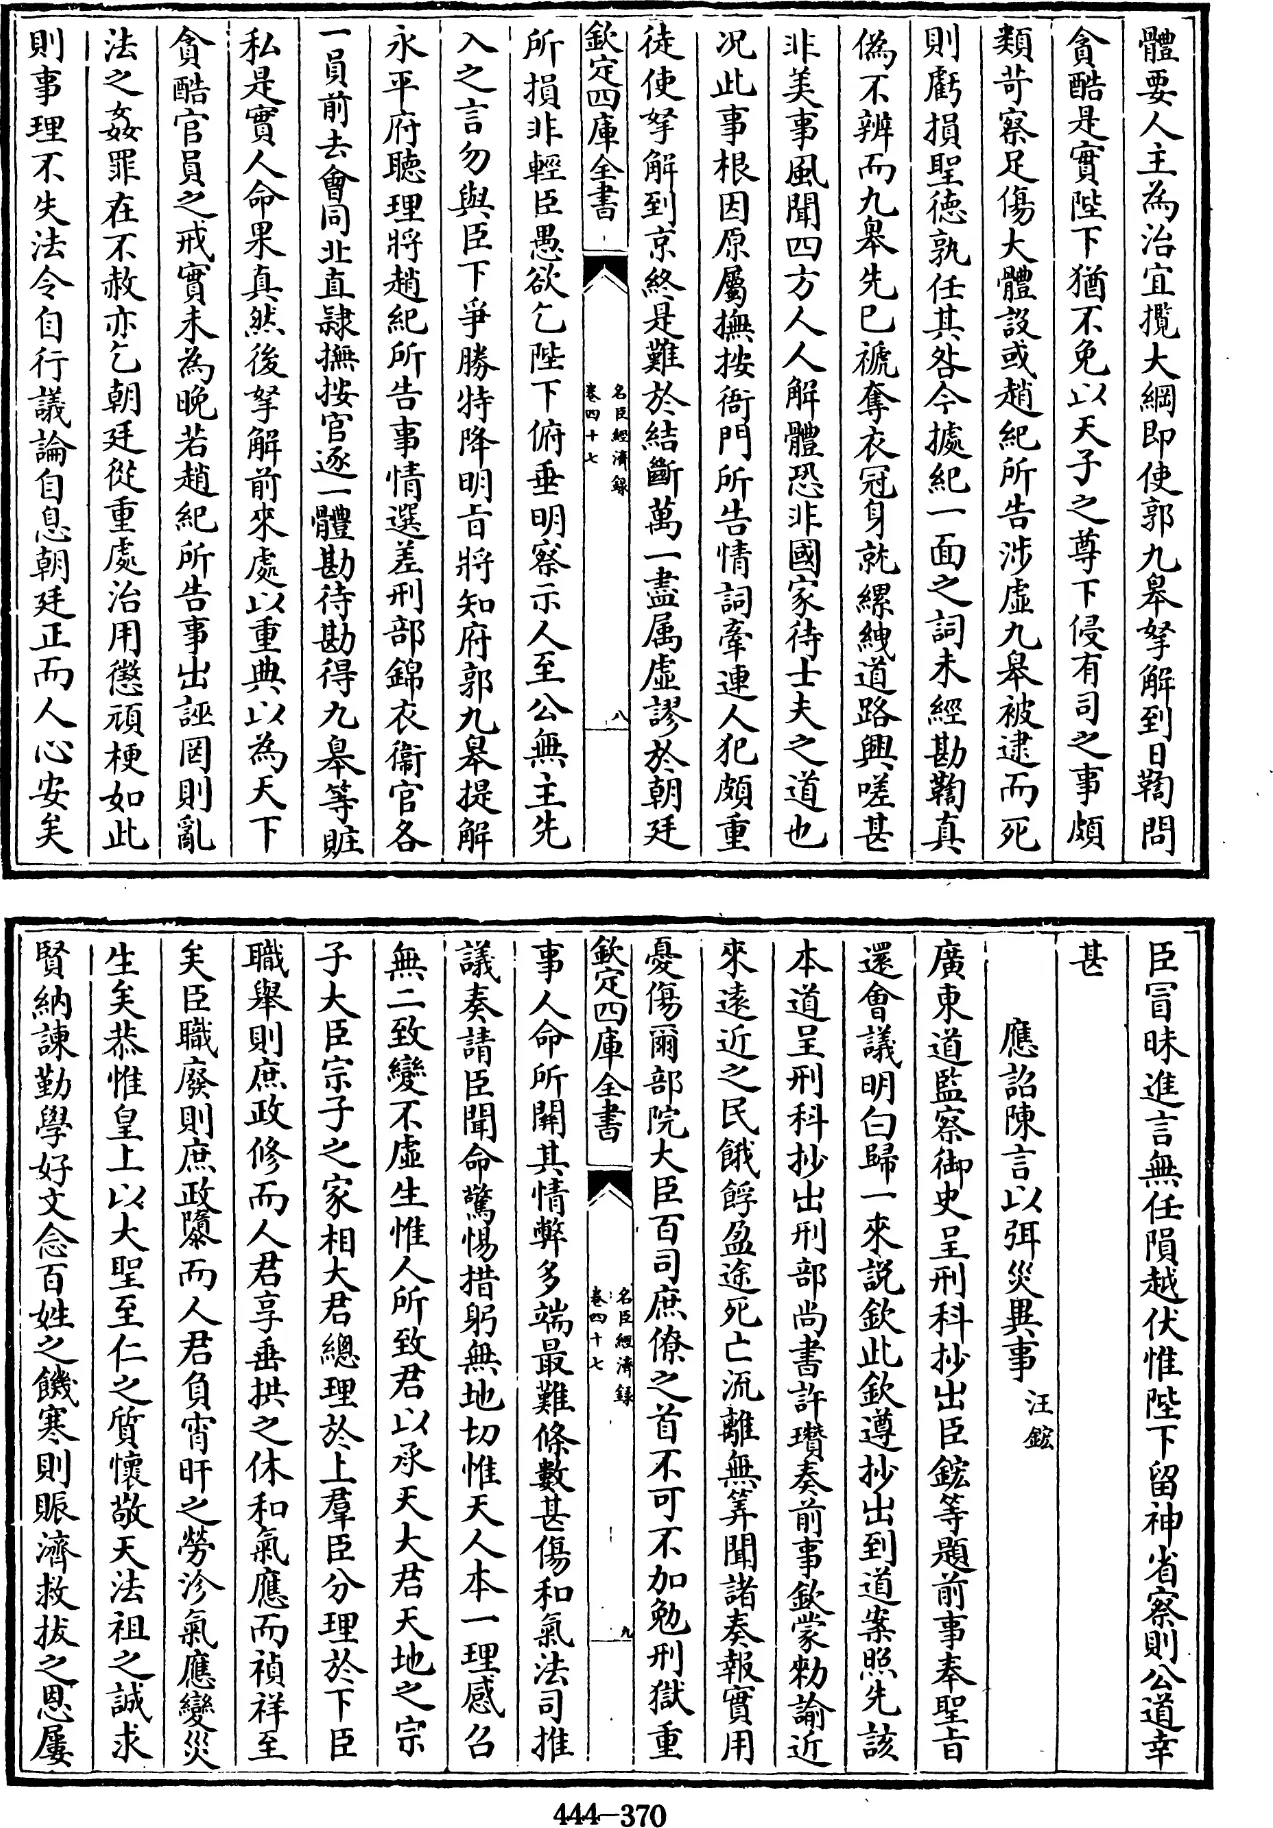 體要人主為治宜攬大綱即使郭九皋拏解到日鞫問
貪酷是實陛下猶不免以天子之尊下侵有司之事頗
類苛察足傷大體設或趙紀所告涉虛九皋被逮而死
則虧損聖徳孰任其咎今據紀一面之詞未經勘鞫真
偽不辨而九皋先已褫奪衣冠身就縲絏道路興嗟甚
非美事風聞四方人人解體恐非國家待士夫之道也
况此事根因原屬撫按衙門所告情詞牽連人犯頗重
徒使拏解到京終是難於結斷萬一盡属虛謬於朝廷
欽定四庫全書
名臣經濟録
卷四十七
八
所損非輕臣愚欲乞陛下俯垂明察示人至公無主先
入之言勿與臣下爭勝特降明旨將知府郭九皋提解
永平府聽理將趙紀所告事情選差刑部錦衣衞官各
一員前去會同北直隷撫按官逐一體勘待勘得九皋等贓
私是實人命果真然後拏解前來處以重典以為天下
貪酷官員之戒實未為晩若趙紀所告事出誣罔則亂
法之姦罪在不赦亦乞朝廷從重處治用懲頑梗如此
則事理不失法令自行議論自息朝廷正而人心安矣
臣冒昧進言無任隕越伏惟陛下留神省察則公道幸
甚
應詔陳言以弭災異事 汪鋐
廣東道監察御史呈刑科抄出臣鋐等題前事奉聖旨
還會議明白歸一來説欽此欽遵抄出到道案照先該
本道呈刑科抄出刑部尚書許瓚奏前事欽蒙勅諭近
來遠近之民餓殍盈途死亡流離無筭聞諸奏報實用
憂傷爾部院大臣百司庶僚之首不可不加勉刑獄重
欽定四庫全書
名臣經濟録
卷四十七
九
事人命所關其情弊多端最難條數甚傷和氣法司推
議奏請臣聞命驚惕措躬無地切惟天人本一理感召
無二致變不虛生惟人所致君以承天大君天地之宗
子大臣宗子之家相大君總理於上羣臣分理於下臣
職舉則庶政修而人君享垂拱之休和氣應而禎祥至
矣臣職廢則庶政隳而人君負宵旰之勞沴氣應變災
生矣恭惟皇上以大聖至仁之質懷敬天法祖之誠求
賢納諫勤學好文念百姓之饑寒則賑濟救拔之恩屢
444-370